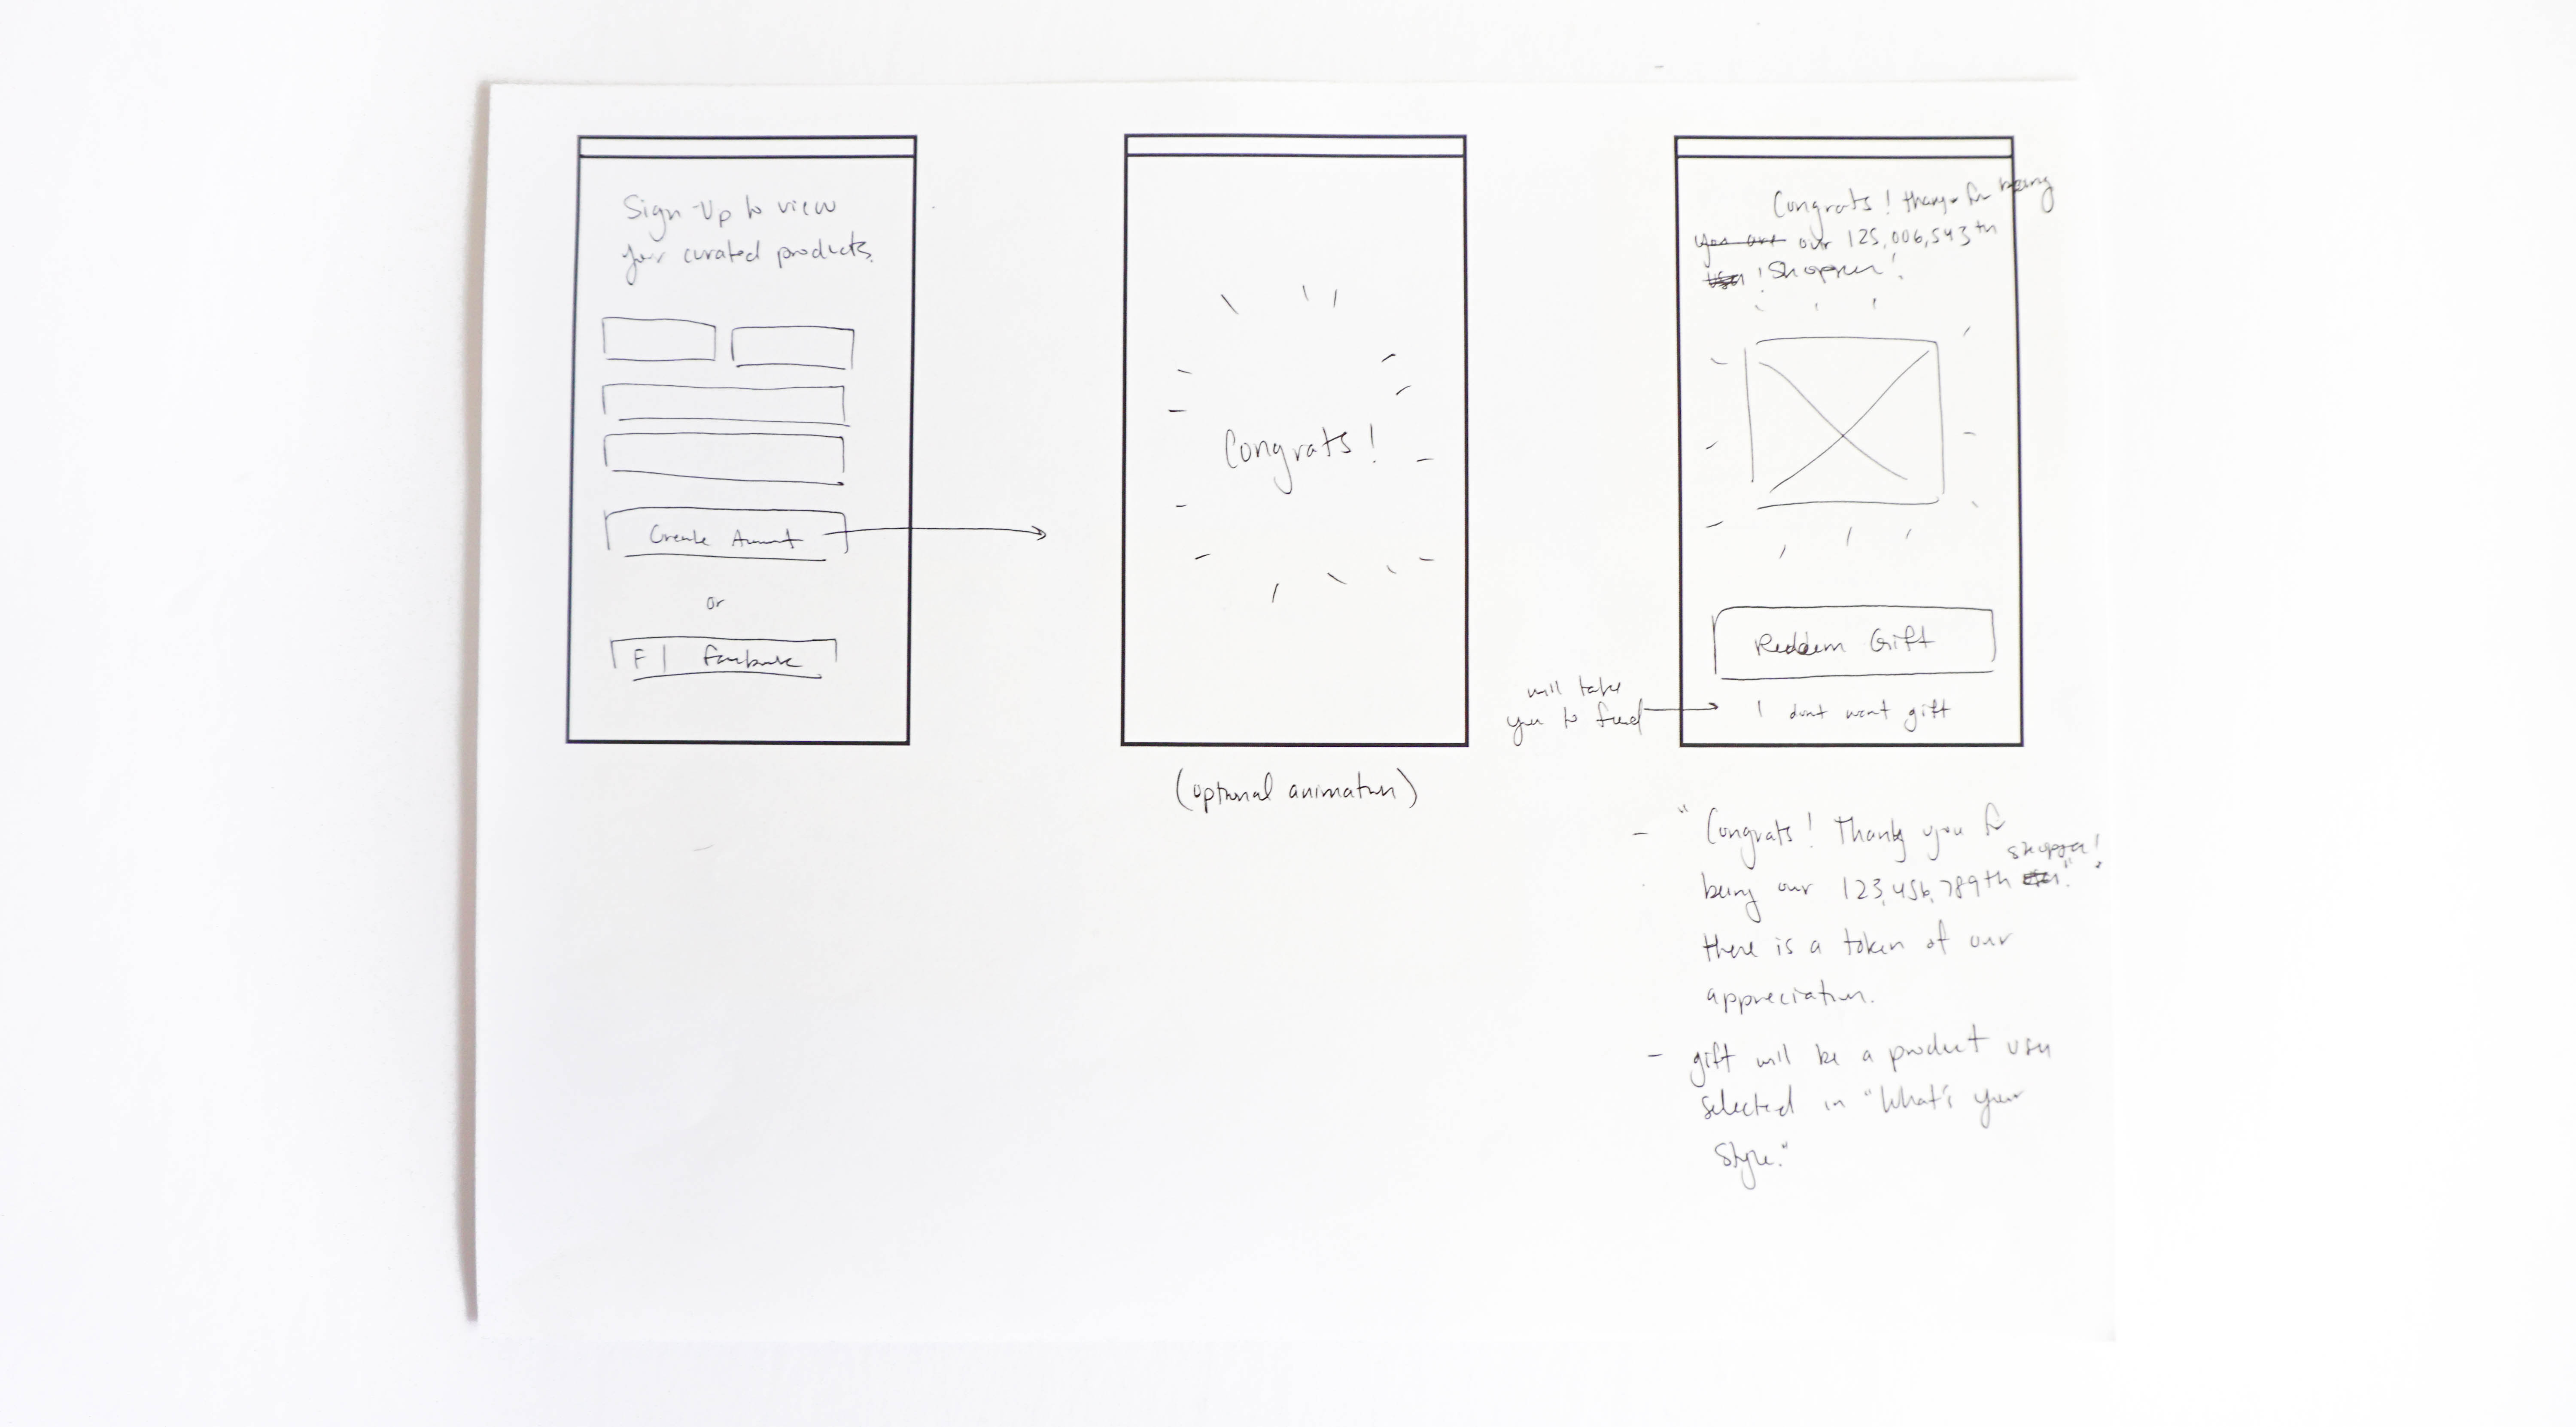 Sign-Up to view
your curated products.
Create Account
or
F Facebook
Congrats!
(optional animation)
Congrats! thanks for being
you are our 125,006,543th
user! Shopper!
Redeem Gift
I dont want gift
will take
you to feed
- "Congrats! Thank you for
being our 123,456,789th user." shopper!
there is a token of our
appreciation.
- gift will be a product user
selected in "What's your
Style."